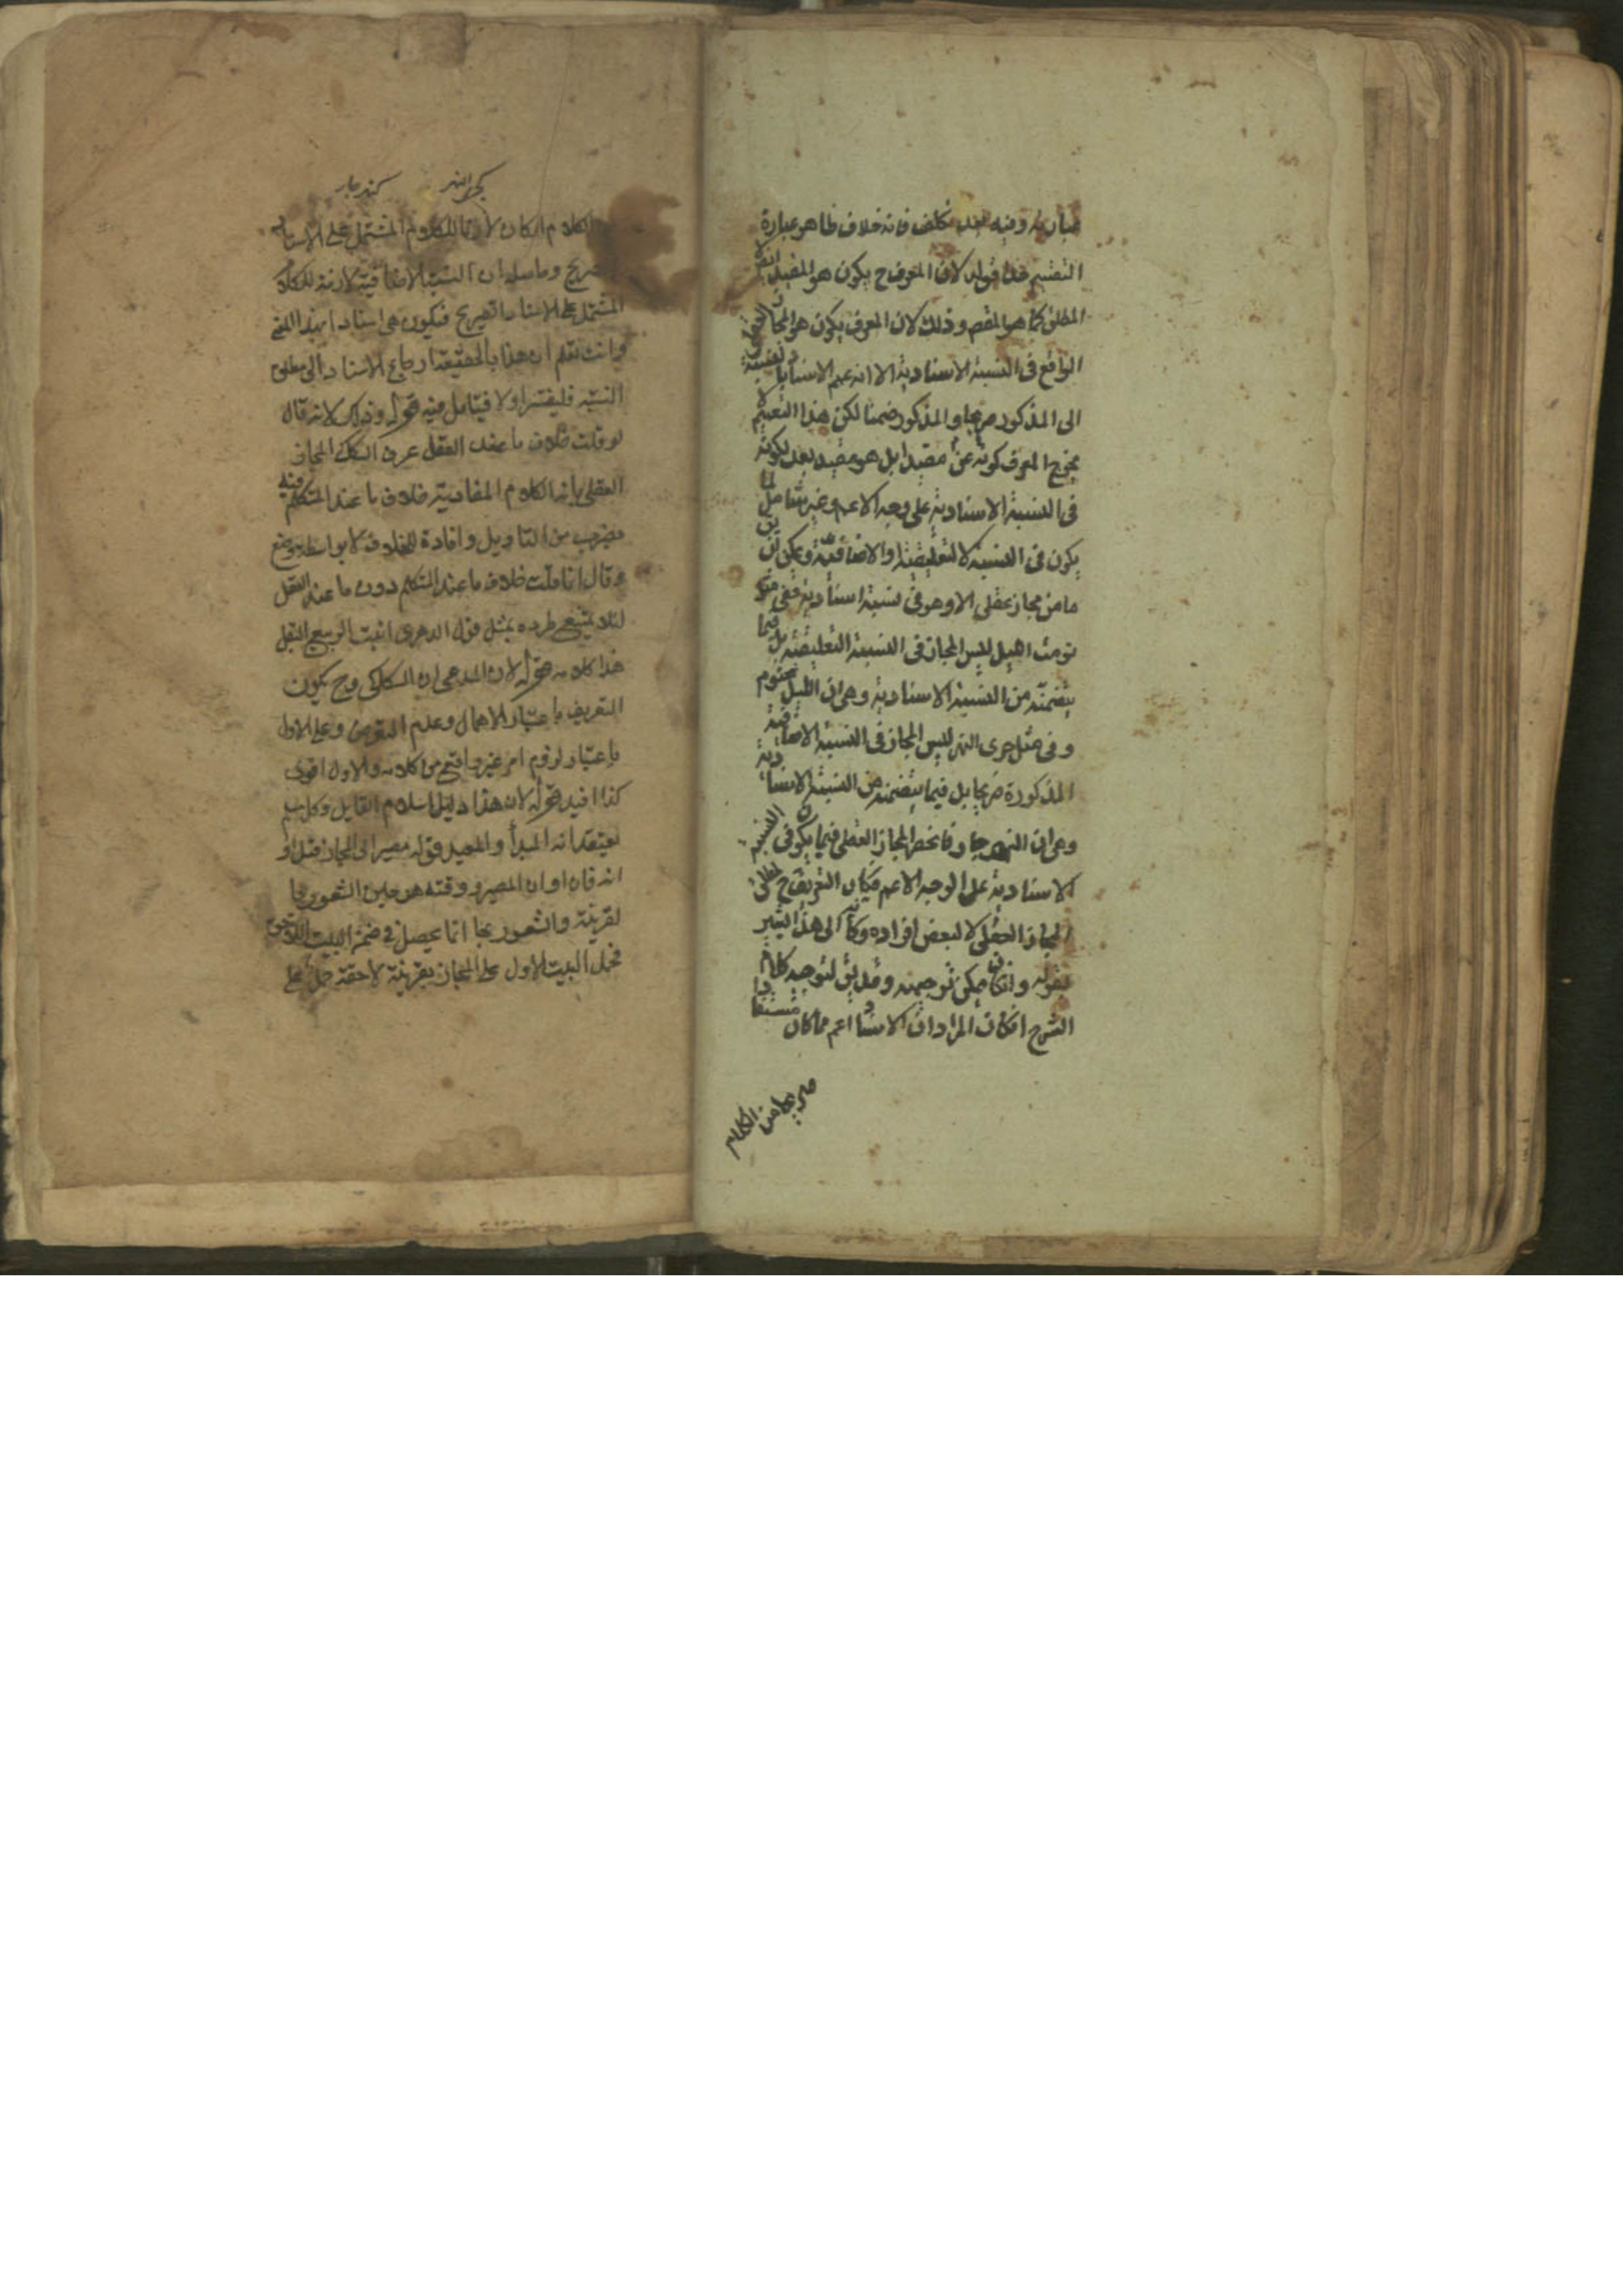 عبارته وفيه بعد تكلف فانه خلاف ظاهر عبارة
التفسير قوله لان المعرف ح يكون هو المقيد
المطلق كما هو المقصم وذلك لان المعرف يكون هو المجاز العقلى
الواقع فى النسبة الاسنادية الا انه عمم الاسناد بالنسبة
الى المذكور صريحا والمذكور ضمنا لكن هذا التعميم
يخرج المعرف كونه عن مقيد ابل هو مقيد بعد بكونه
فى النسبة الاسنادية على وجه الاعم وغير شامل لما
يكون فى النسبة التعليقية او الاضافية ويمكن ان يق
ما من مجاز عقلى الا وهو فى نسبة اسنادية ففى قوله
نومت الليل ليس المجاز فى النسبة التعليقية بل فيما
يتضمنه من النسبة الاسنادية وهى ان الليل منوم
وفى مثل جرى النهر ليس المجاز فى النسبة الاضافية
المذكورة صريحا بل فيما يتضمنه من النسبة الاسنادية
وهى ان النهر جار فانحصر المجاز العقلى فيما يكون فى النسبة
الاسنادية على الوجه الاعم فكان التعريف ح لمطلق
المجاز العقلى لا لبعض افراده وكانه الى هذا اشير
بقوله وان كان يمكن توجيهه وقد يق لتوجيه كلام
الشرح ان كان المراد ان الاسناد اعم مما كان مستفادا
صريحا من الكلام
كجرى النهر كنهر جار
الكلام او كان لازما للكلام المشتمل على الاسناد
صريح وحاصله ان النسبة الاضافية لازمة للكلام
المشتمل على الاسناد الصريح فيكون هى اسنادا بهذا المعنى
وانت تعلم ان هذا بالحقيقة ارجاع الاسناد الى مطلق
النسبة فليفسر اولا فيتامل فيه قوله وذلك لانه قال
لو قلت خلاف ما عند العقل عرف السكاكى المجاز
العقلى بانه الكلام المفاد به خلاف ما عند المتكلم فيه
بضرب من التاويل وافادة للخلاف لا بواسطة وضع
وقال انما قلت خلاف ما عند المتكلم دون ما عند العقل
لئلا يمتنع طرده بمثل قول الدهرى انبت الربيع البقل
هذا كلامه قوله لان المدعى ان السكاكى وح يكون
التعريف باعتبار الاهمال وعدم التعرض وعلى الاول
باعتبار لزوم امر غير واقع من كلامه والاول اقوى
كذا افيد قوله لان هذا دليل اسلام القايل وكل مسلم
يعتقد انه المبدأ والمعيد قوله مصير الى المجاز قبل او
انه فان اوان المصير ووقته هو حين الشعور بها
لقرينة والشعور بها انما يحصل فى ضمن البيت اللاحق
فحمل البيت الاول على المجاز بقرينة لاحقة حمل على